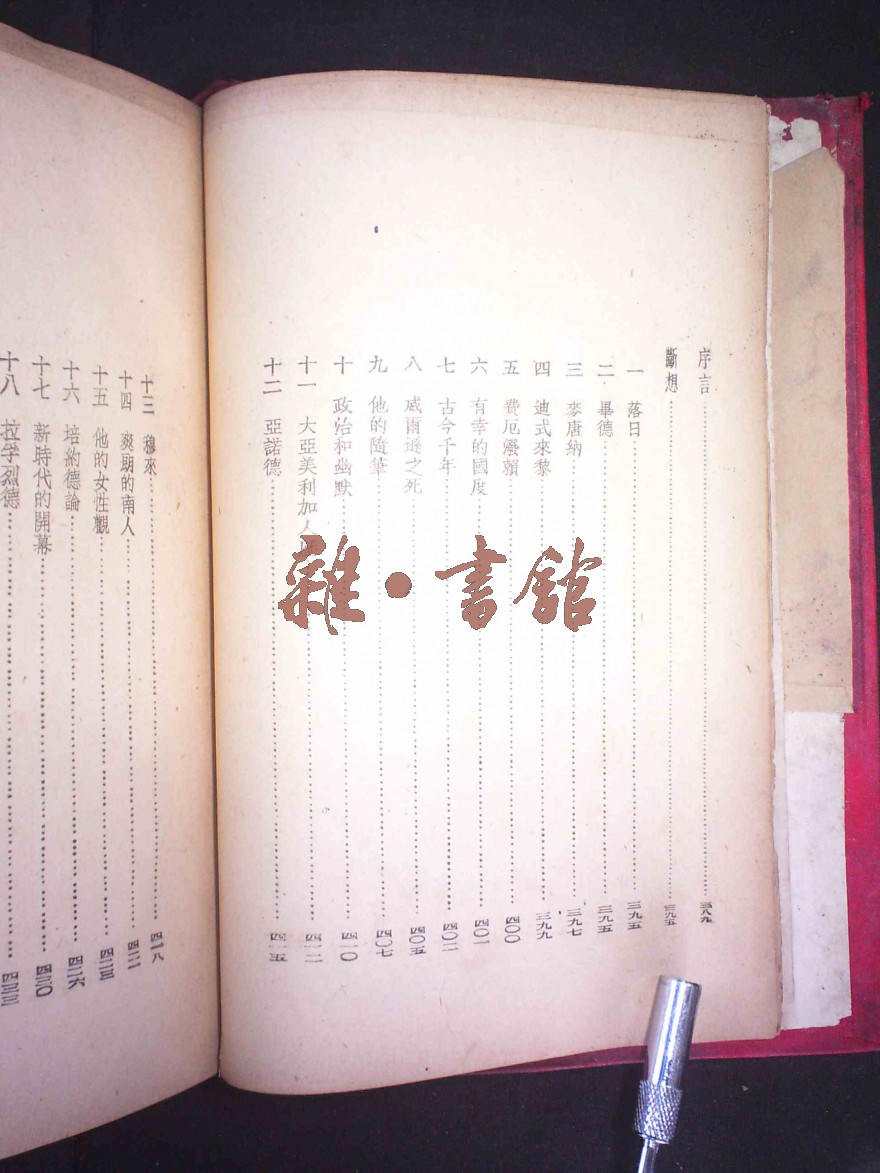 序言 三八九
斷想 三九五
一 落日 三九五
二 畢德 三九五
三 麥唐納 三九七
四 迪式來黎 三九九
五 費厄潑賴 四〇〇
六 有幸的國度 四〇一
七 古今千年 四〇二
八 威爾遜之死 四〇五
九 他的隨筆 四〇七
十 政治和幽默 四一〇
十一 大亞美利加人 四一二
十二 亞諾德 四一五
十三 穆來 四一八
十四 爽朗的南人 四二一
十五 他的女性觀 四二三
十六 培約德論 四二六
十七 新時代的開幕 四三〇
十八 拉孚烈德 四三三
雜·書舘